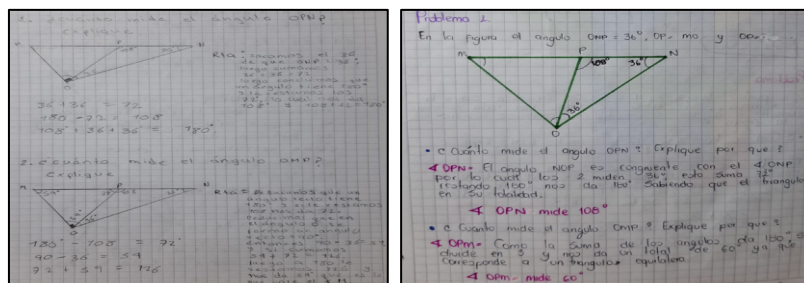 1. ¿cuánto mide el ángulo OPN?
Explique
M
P
N
O
Rta= Tenemos el 36°
de que ONP = 36°
luego sumamos
36 + 36 = 72
luego concluimos que
un ángulo tiene 180°
108° y 108+72=180°
36 + 36 = 72
180 - 72 = 108
108 + 36 + 36 = 180°
2. ¿cuánto mide el ángulo OMP?
Explique
M
P
N
O
180° - 108 = 72°
90 - 36 = 54
72 + 54 = 126
Problema 2.
En la figura el angulo ONP = 36°, OP= mo y
M
P
N
108°
36°
36°
O
• ¿Cuánto mide el angulo OPN? Explique por que?
∢ OPN- El angulo NOP es congruente con el ∢ ONP
por lo cual los 2 miden 36°, esto suma 72°
restando 180° nos da Sabiendo que el triangulo
en su totalidad.
∢ OPN mide 108°
• ¿Cuánto mide el angulo OMP? Explique por que?
∢ OPm- Como la suma de los angulos da 180° se
divide en 3 y nos da un total de 60° ya que
corresponde a un triangulo equilatero.
∢ OPm- mide 60°